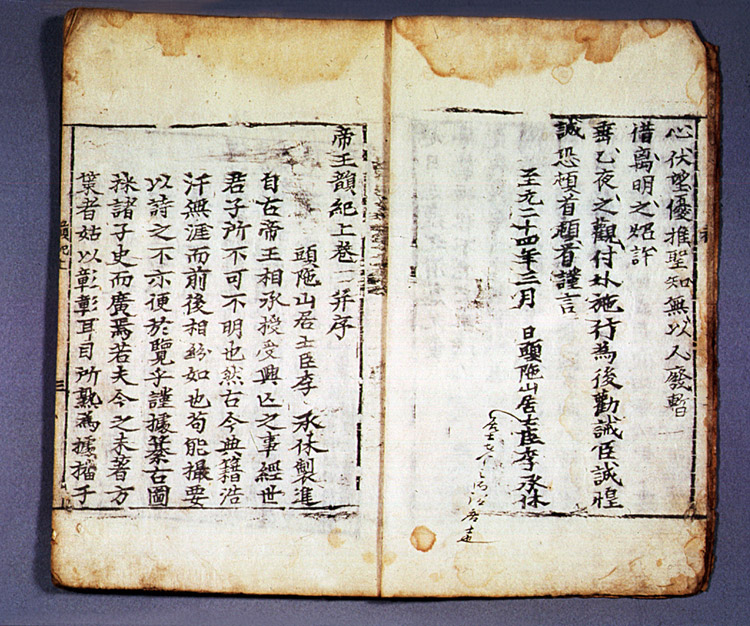 心伏望優推聖知無以人廢暫
借离明之許
垂乙夜之觀付外施行為後勸誡臣誠惶
誠恐頓首頓首謹言
至元二十四年三月 日頭陁山居士臣李承休
居士
帝王韻紀上卷 并序
頭陁山居士臣李 承休製進
自古帝王相承授受興亡之事經世
君子所不可不明也然古今典籍浩
汗無涯而前後相紛如也苟能撮要
以詩之不亦便於覽乎謹據纂古圖
採諸子史而廣焉若夫今之未著方
策者姑以彰彰耳目所熟為據播于
韻紀上
三